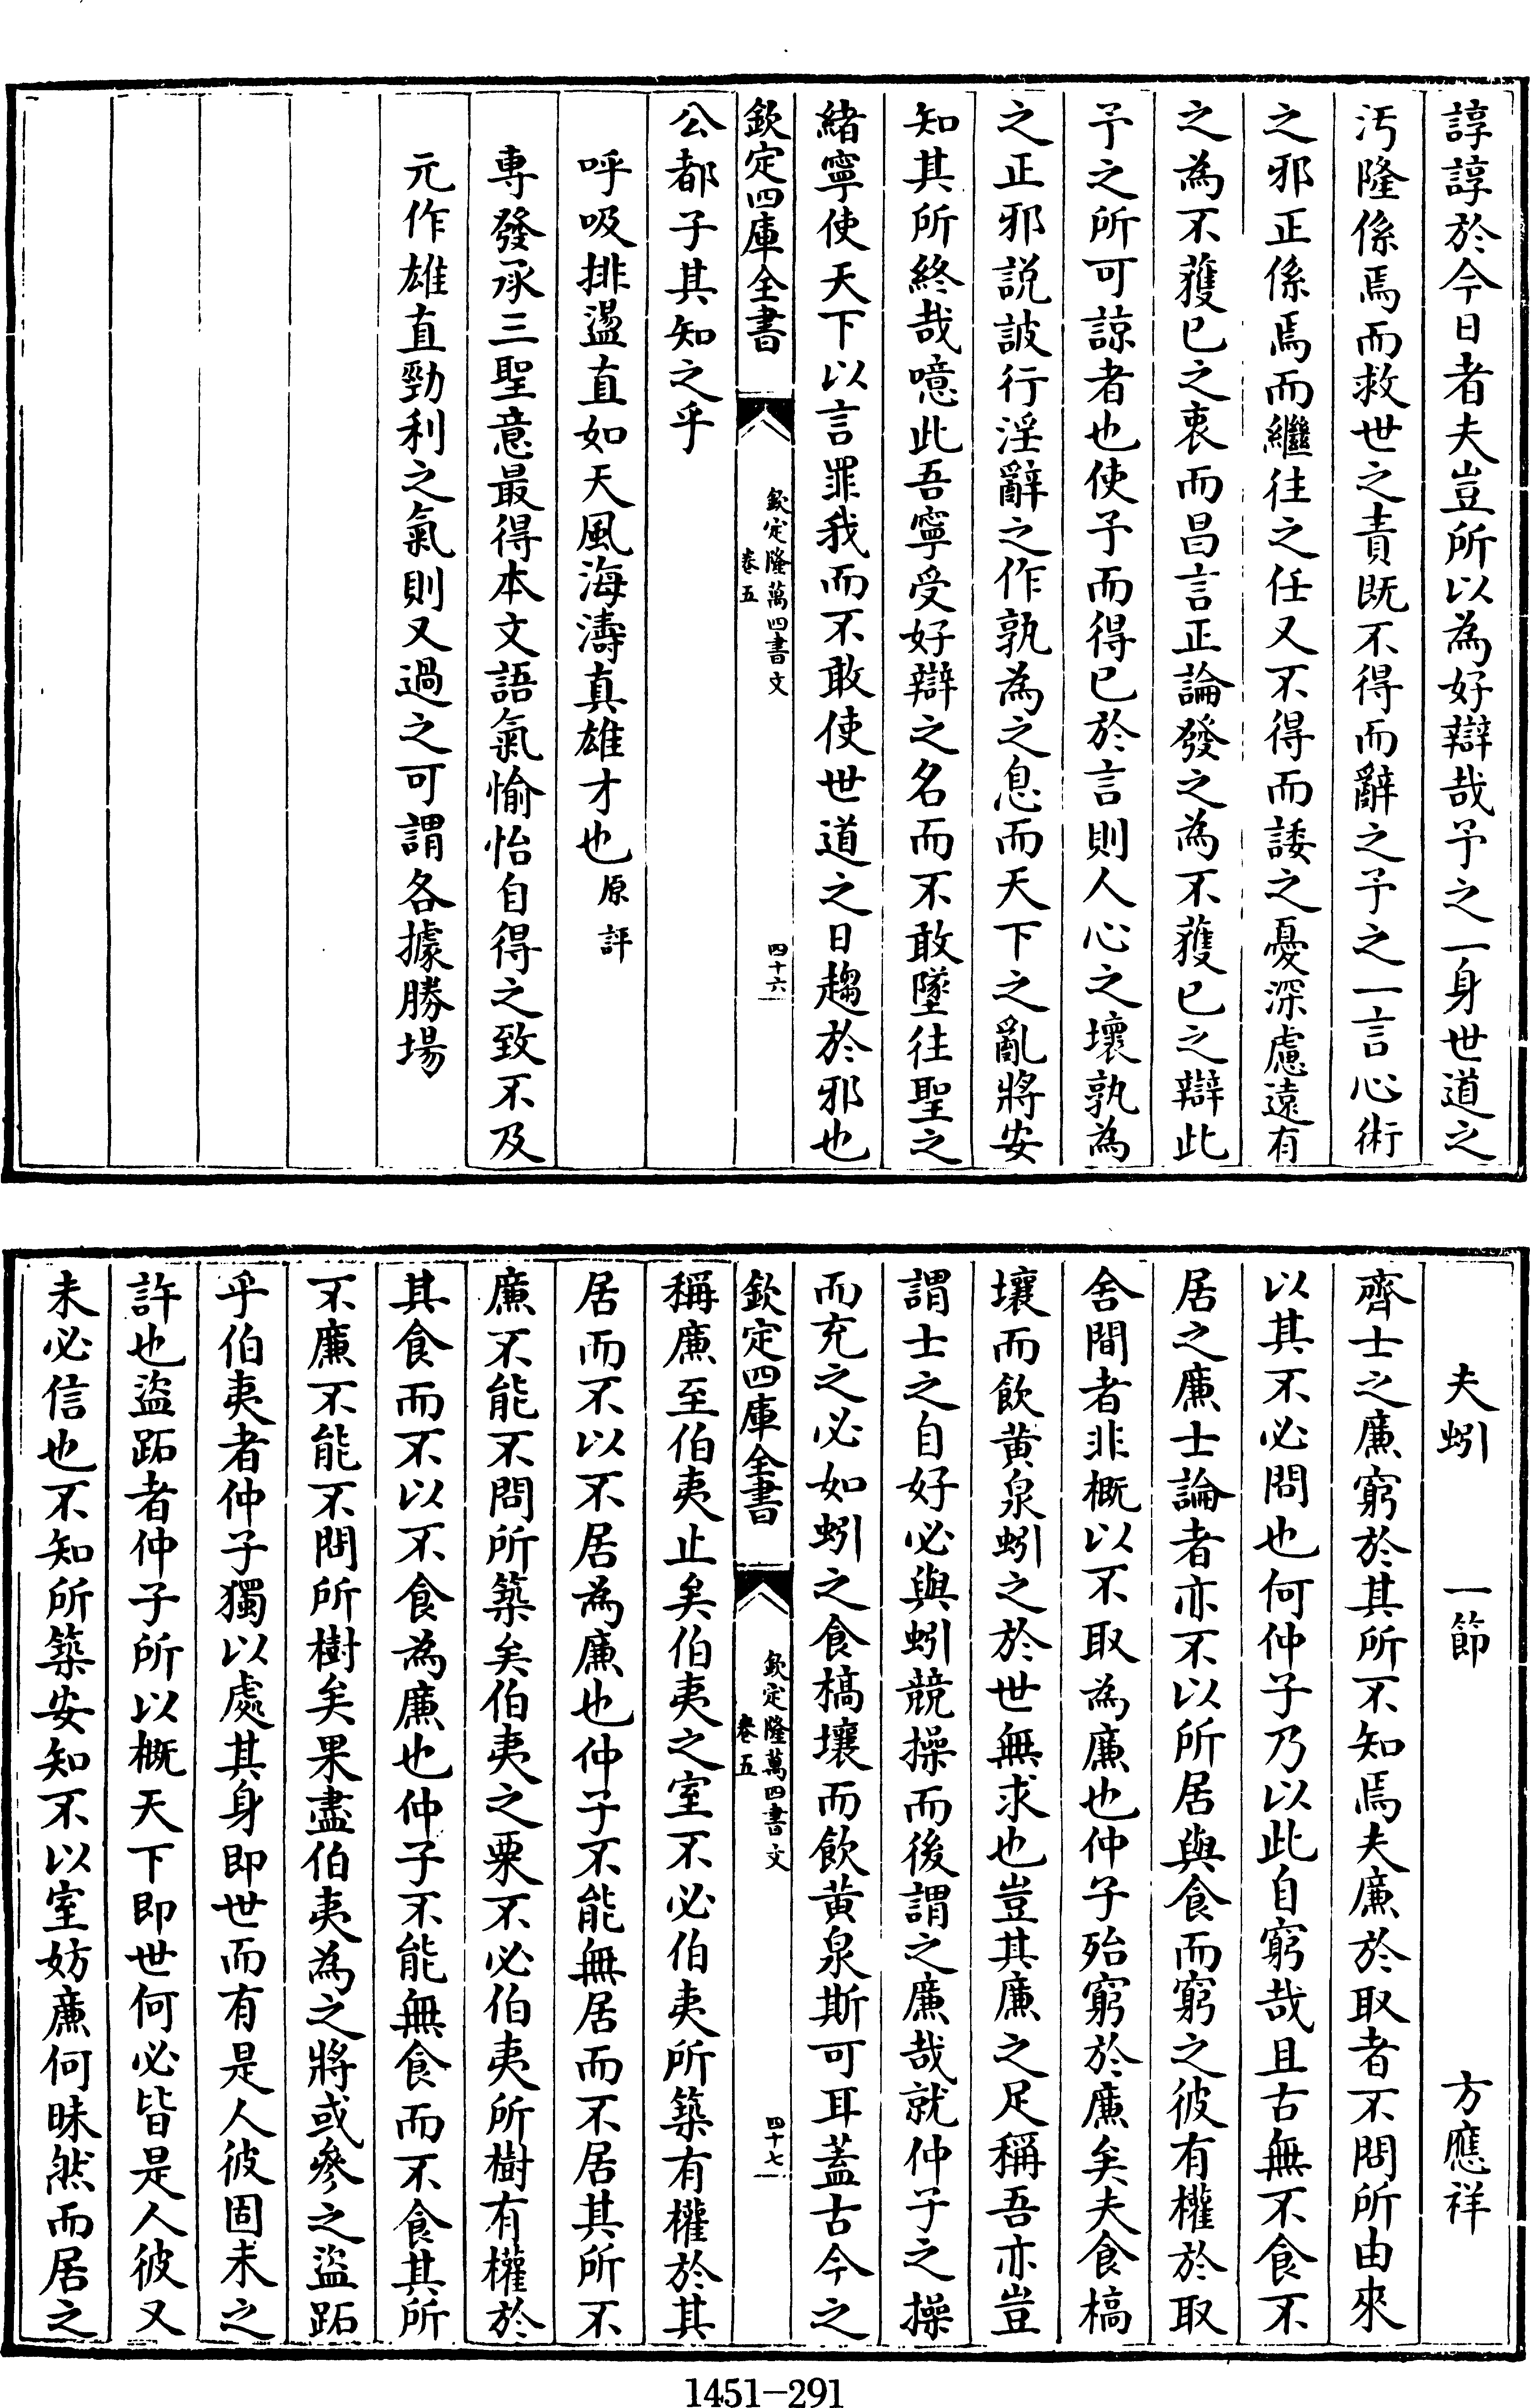 諄諄於今日者夫豈所以為好辯哉予之一身世道之
汚隆係焉而救世之責既不得而辭之予之一言心術
之邪正係焉而繼往之任又不得而諉之憂深慮遠有
之為不獲已之衷而昌言正論發之為不獲已之辯此
予之所可諒者也使予而得已於言則人心之壞孰為
之正邪説詖行淫辭之作孰為之息而天下之亂將安
知其所終哉噫此吾寧受好辯之名而不敢墜往聖之
緒寧使天下以言罪我而不敢使世道之日趨於邪也
欽定四庫全書
欽定隆萬四書文
卷五
四十六
公都子其知之乎
呼吸排盪直如天風海濤真雄才也原評
專發承三聖意最得本文語氣愉怡自得之致不及
元作雄直勁利之氣則又過之可謂各據勝場
夫蚓 一節 方應祥
齊士之廉窮於其所不知焉夫廉於取者不問所由來
以其不必問也何仲子乃以此自窮哉且古無不食不
居之廉士論者亦不以所居與食而窮之彼有權於取
舍間者非概以不取為廉也仲子殆窮於廉矣夫食槁
壤而飲黄泉蚓之於世無求也豈其廉之足稱吾亦豈
謂士之自好必與蚓競操而後謂之廉哉就仲子之操
而充之必如蚓之食槁壤而飲黄泉斯可耳蓋古今之
欽定四庫全書
欽定隆萬四書文
卷五
四十七
稱廉至伯夷止矣伯夷之室不必伯夷所築有權於其
居而不以不居為廉也仲子不能無居而不居其所不
廉不能不問所築矣伯夷之粟不必伯夷所樹有權於
其食而不以不食為廉也仲子不能無食而不食其所
不廉不能不問所樹矣果盡伯夷為之將或參之盜跖
乎伯夷者仲子獨以處其身即世而有是人彼固未之
許也盜跖者仲子所以概天下即世何必皆是人彼又
未必信也不知所築安知不以室妨廉何昧然而居之
1451-291